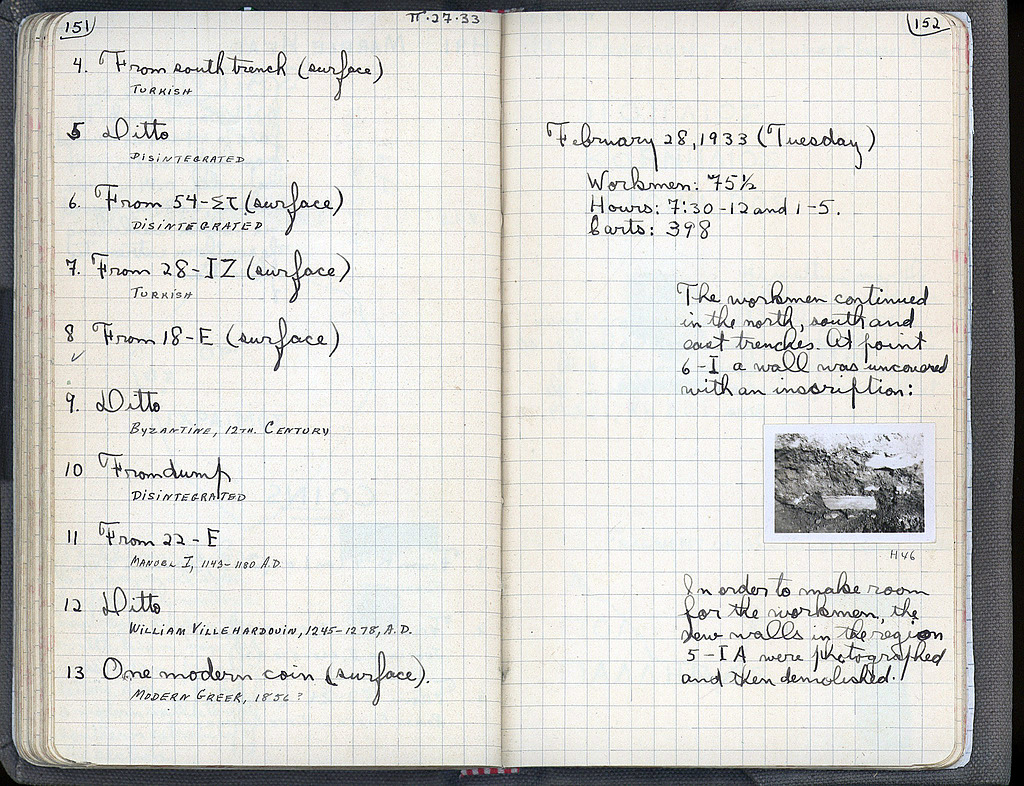 151
II·27·33
4. From south trench (surface)
TURKISH
5 Ditto
DISINTEGRATED
6. From 54-ΣΤ (surface)
DISINTEGRATED
7. From 28-IZ (surface)
TURKISH
8 From 18-E (surface)
9. Ditto
BYZANTINE, 12TH. CENTURY
10 From dump
DISINTEGRATED
11 From 22-E
MANUEL I, 1143-1180 A.D.
12 Ditto
WILLIAM VILLEHARDOUIN, 1245-1278, A.D.
13 One modern coin (surface).
MODERN GREEK, 1856?
152
February 28, 1933 (Tuesday)
Workmen: 75½
Hours: 7:30-12 and 1-5.
Carts: 398
The workmen continued
in the north, south and
east trenches. At point
6-I a wall was uncovered
with an inscription:
H46
In order to make room
for the workmen, the
few walls in the region
5-IA were photographed
and then demolished.